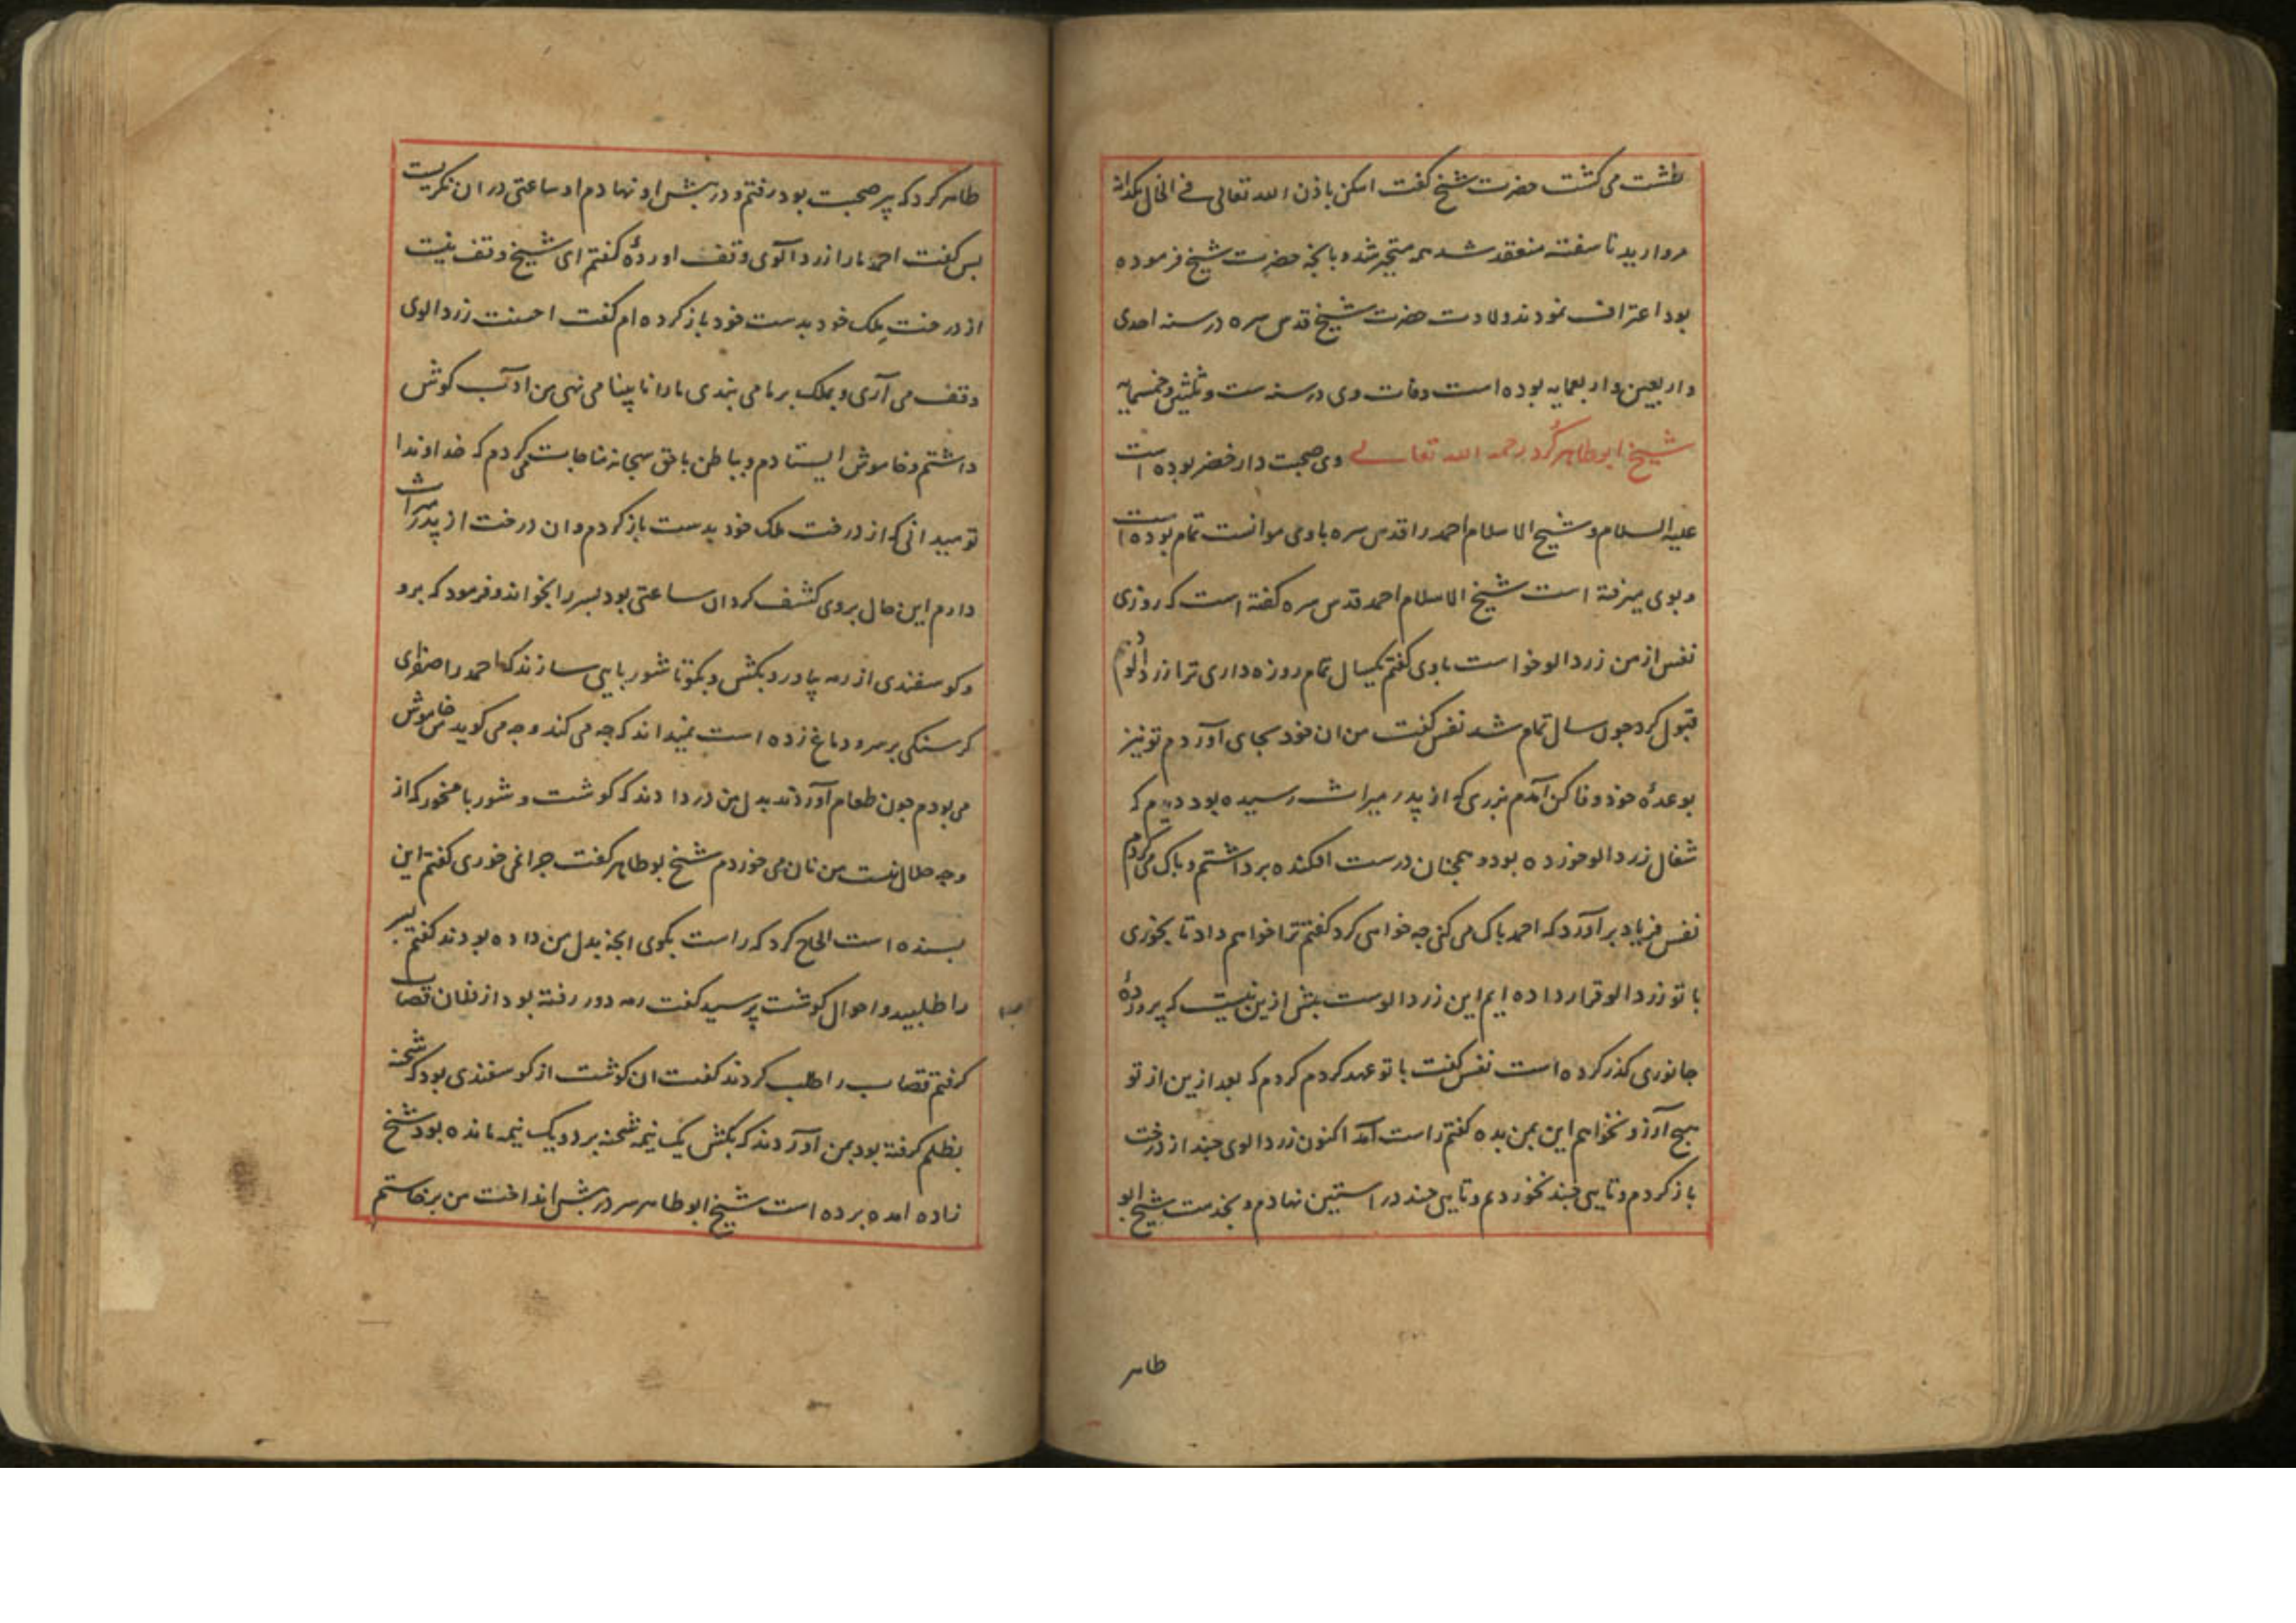 طشت می کشت حضرت شیخ کفت اسکن باذن الله تعالی فی الحال یکدانه
مروارید ناسفته منعقد شد همه متحیر شدند و بانچه حضرت شیخ فرموده
بود اعتراف نمودند ولادت حضرت شیخ قدس سره در سنه احدی
واربعین واربعمایه بوده است وفات وی در سنه ست وثلثین وخمسمایه
شیخ ابوطاهر کرد رحمه الله تعالی وی صحبت دار خضر بوده است
علیه السلام و شیخ الاسلام احمد را قدس سره باوی موانست تمام بوده است
و بوی میرفته است شیخ الاسلام احمد قدس سره کفته است که روزی
نفس از من زردالو خواست باوی کفتم یکسال تمام روزه داری ترا زردالو دهم
قبول کرد چون سال تمام شد نفس کفت من ان خود بجای آوردم تو نیز
بوعدهٔ خود وفا کن آمدم بزری که از پدر میراث رسیده بود دیدم که
شغال زردالو خورده بود و همچنان درست افکنده برداشتم و پاک می کردم
نفس فریاد برآورد که احمد پاک می کنی چه خواهی کرد کفتم ترا خواهم داد تا بخوری
با تو زردالو قرار داده ایم این زردالوست بیش ازین نیست که بر رودهٔ
جانوری کذر کرده است نفس کفت با تو عهد کردم کردم که بعد ازین از تو
هیچ آرزو نخواهم این بمن بده کفتم راست آمد اکنون زردالوی چند از درخت
باز کردم و تایی چند بخوردم و تایی چند در استین نهادم و بخدمت شیخ ابو
طاهر
طاهر کرد که پیر صحبت بود رفتم و در پیش او نهادم او ساعتی در ان نکریست
پس کفت احمد ما را زردآلوی وقف اوردهٔ کفتم ای شیخ وقف نیست
از درخت ملک خود بدست خود باز کرده ام کفت احسنت زردالوی
وقف می آری و بملک بر ما می بندی ما را نابینا می نهی من ادب کوش
داشتم و خاموش ایستادم و بباطن با حق سبحانه مناجات می کردم که خداوندا
تو میدانی که از درخت ملک خود بدست باز کردم و ان درخت از پدر میراث
دارم این حال بر وی کشف کردان ساعتی بود پسر را بخواند و فرمود که برو
و کوسفندی از رمه بیاور و بکش و بکو تا شوربایی سازند که احمد را صفرای
کرسنکی بر سر و دماغ زده است نمیداند که چه می کند و چه می کوید من خاموش
می بودم چون طعام آوردند بدل من در دادند که کوشت و شوربا مخور که از
وجه حلال نیست من نان می خوردم شیخ بوطاهر کفت چرا نمی خوری کفتم این
بسنده است الحاح کرد که راست بکوی انچه بدل من داده بودند کفتم پسر
را طلبید و احوال کوشت پرسید کفت رمه دور رفته بود از فلان قصاب
کرفتم قصاب را طلب کردند کفت ان کوشت از کوسفندی بود که شحنه
بظلم کرفته بود بمن آوردند که بکش یک نیمه شحنه برد و یک نیمه مانده بود شیخ
زاده امده برده است شیخ ابوطاهر سر در پیش انداخت من برخاستم